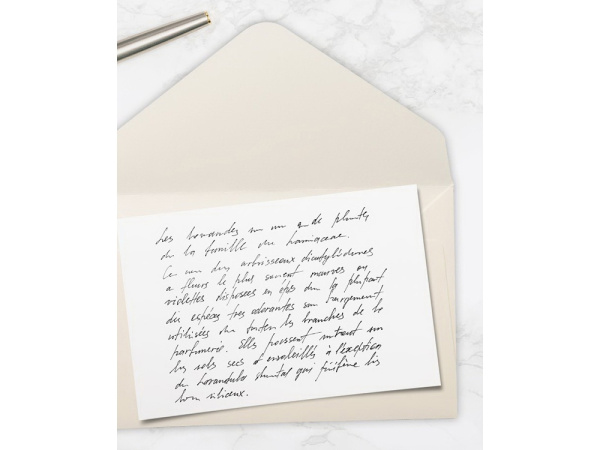 Les lavandes un un de plantes
de la famille du Lamiaceae.
Ce sont des arbrisseaux dicotylédones
a fleurs le plus souvent mauves ou
violettes disposées en épis dur la plupart
des espéces tres odorantes son largement
utilisées dan toutes les branches de la
parfumerie. Elles poussent surtout sur
les sols secs et ensoleillés à l'exception
de Lavandula qui préfére les
sols silieux.